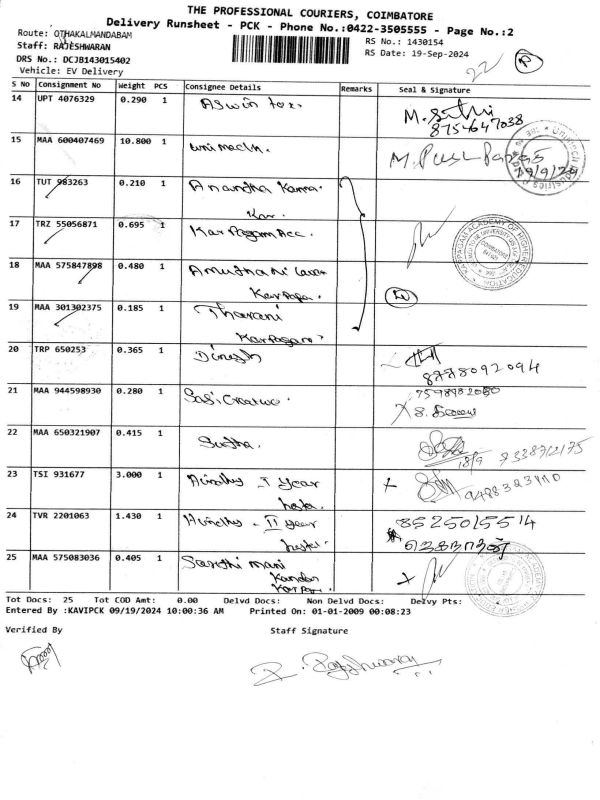 THE PROFESSIONAL COURIERS, COIMBATORE
Delivery Runsheet - PCK - Phone No.:0422-3505555 - Page No.:2
Route: OTHAKALMANDABAM
RS No.: 1430154
Staff: RAJESHWARAN
RS Date: 19-Sep-2024
DRS No.: DCJB143015402
22
Vehicle: EV Delivery
S No Consignment No Weight PCS Consignee Details Remarks Seal & Signature
14 UPT 4076329 0.290 1 Aswin tex. M. Sithi
8754647038
15 MAA 600407469 10.800 1 Unimech. M. Push
19/9/24
16 TUT 983263 0.210 1 Anantha Kumar
Kar.
17 TRZ 55056871 0.695 1 Karpagam Acc.
18 MAA 575847898 0.480 1
Karpaga.
19 MAA 301302375 0.185 1 Tharani
Karpagam
20 TRP 650253 0.365 1 Dinesh
8778092094
21 MAA 944598930 0.280 1 Sasi Creative.
22 MAA 650321907 0.415 1 Sugtha.
18/9 7338712175
23 TSI 931677 3.000 1 I year
24 TVR 2201063 1.430 1 II year 8525015514
25 MAA 575083036 0.405 1 mani
Tot Docs: 25 Tot COD Amt: 0.00 Delvd Docs: Non Delvd Docs: Delvy Pts:
Entered By :KAVIPCK 09/19/2024 10:00:36 AM Printed On: 01-01-2009 00:08:23
Verified By Staff Signature
R. Rajeshwaran